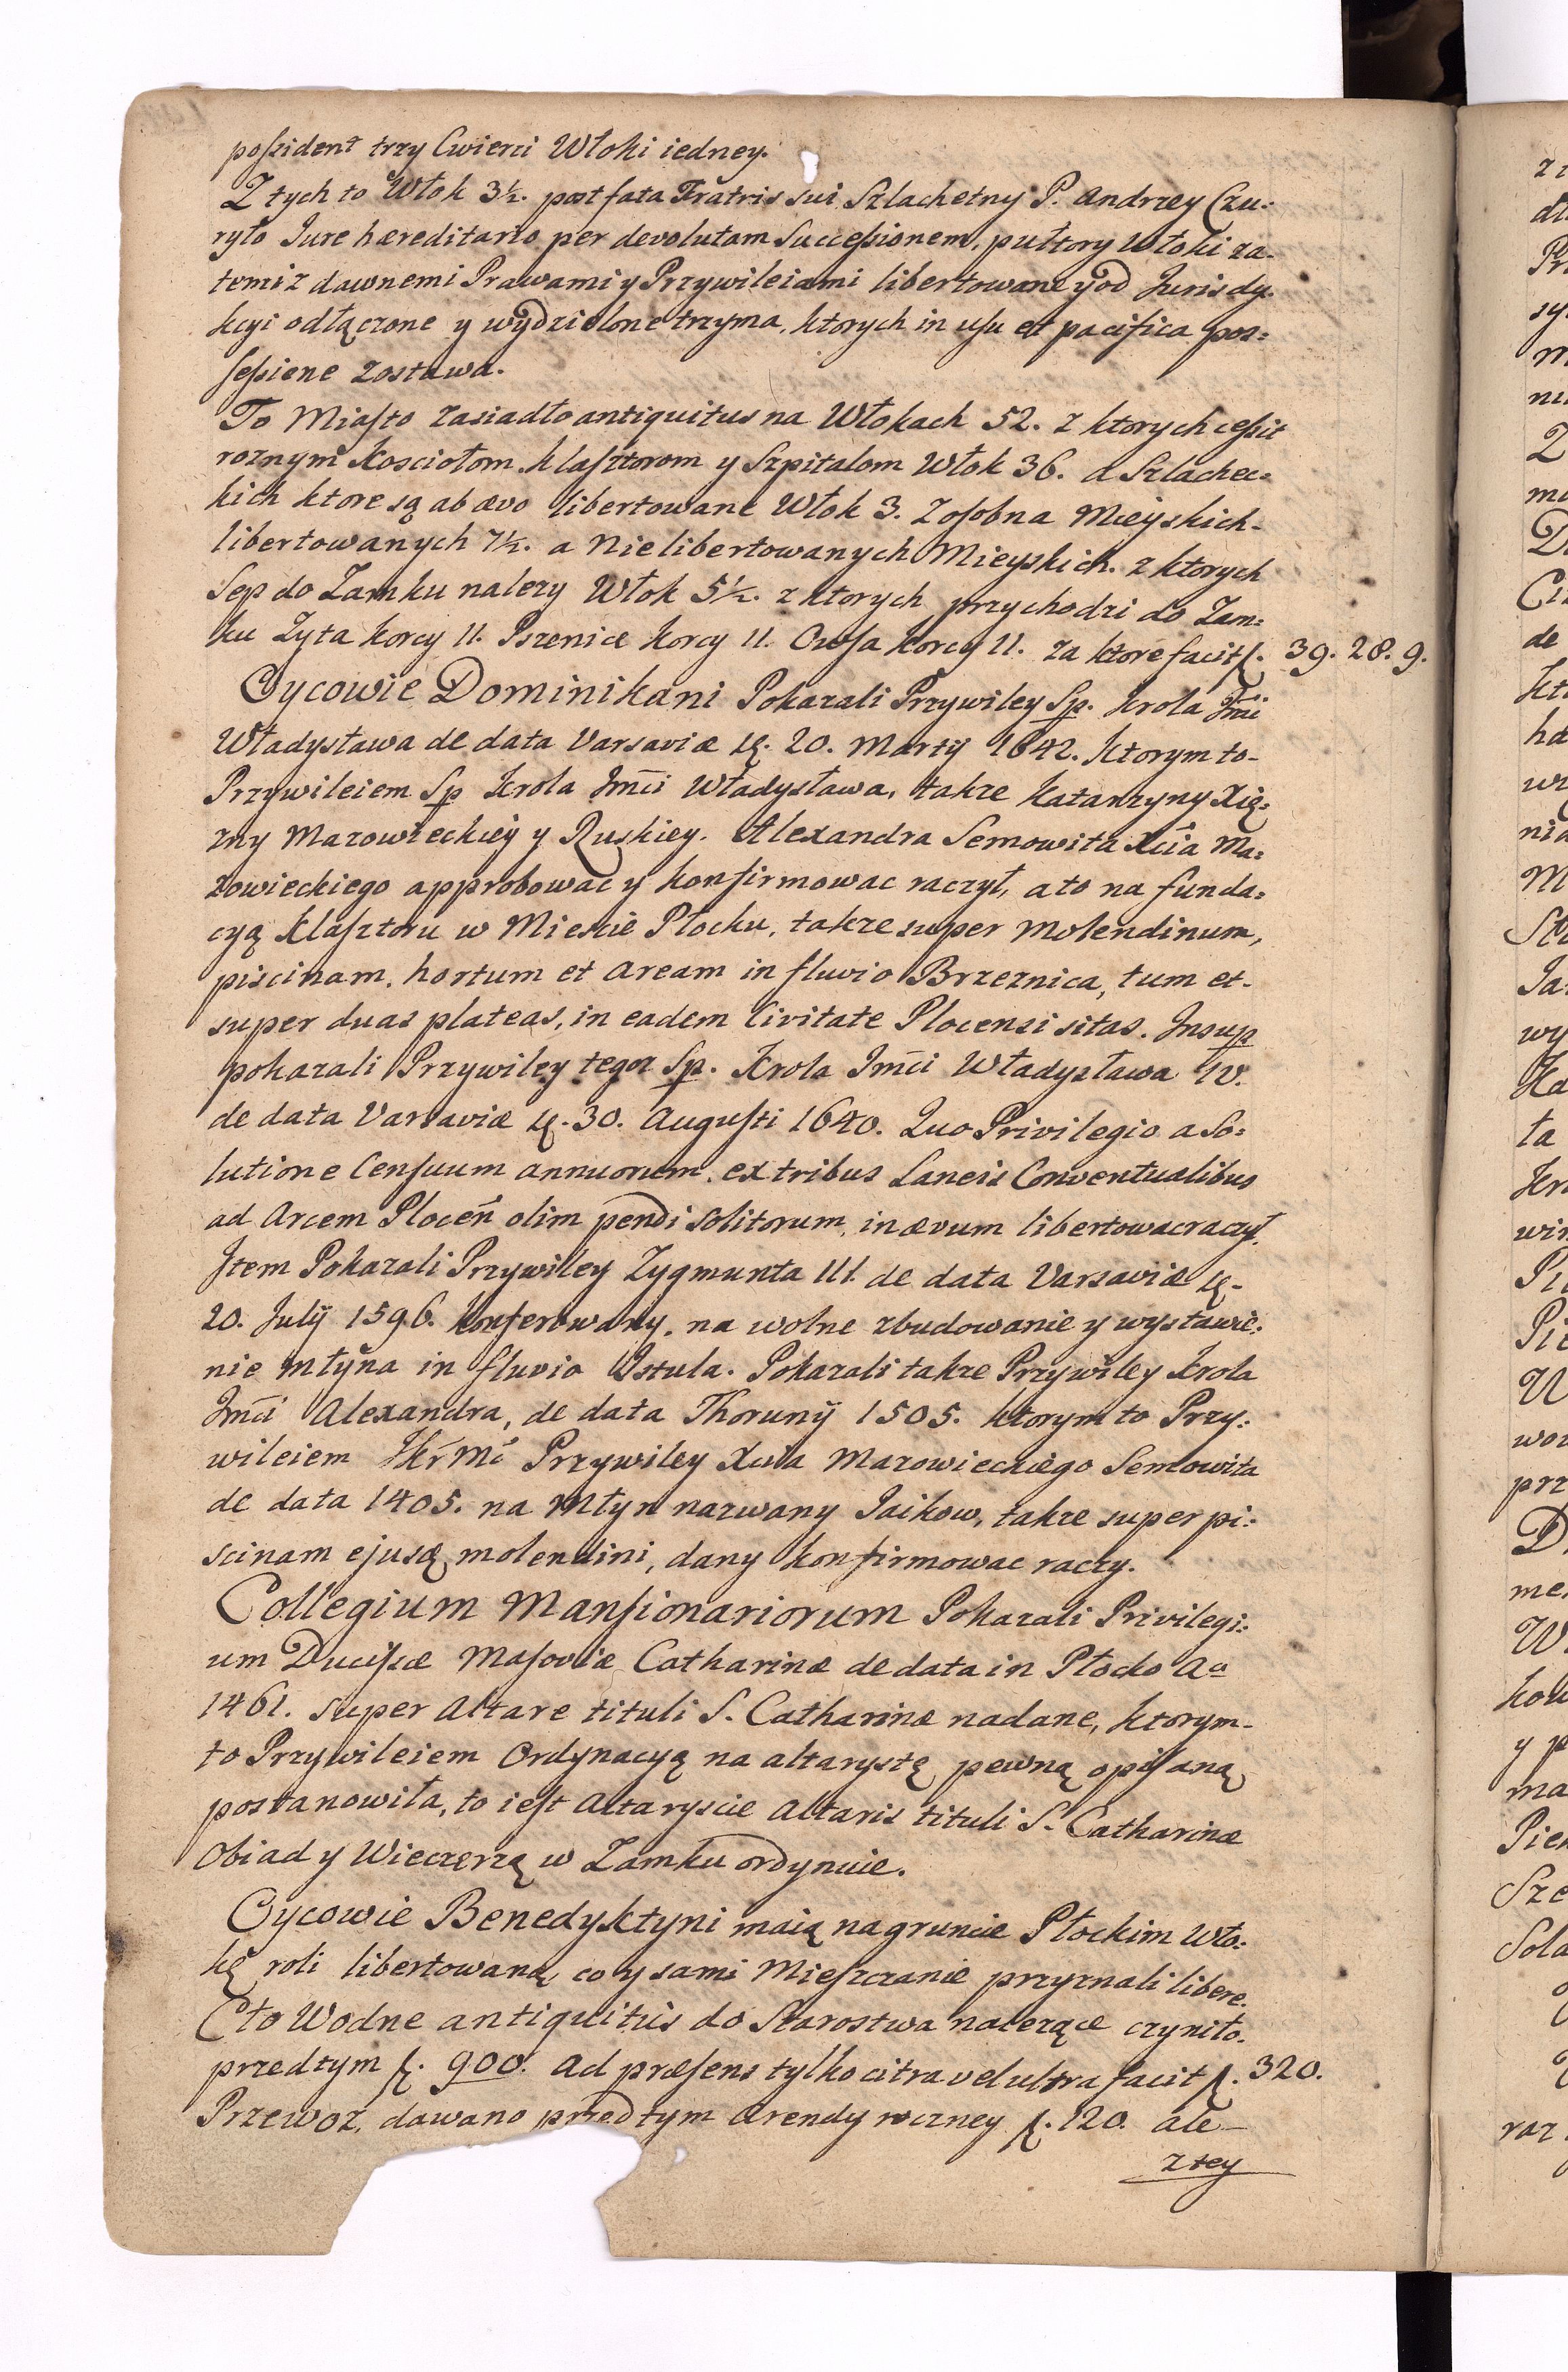 poſsident trzy Cwierci Włoki iedney.
Z tych to Włok 3½. post fata Fratris sui Szlachetny P. Andrzey Czu=
ryło Jure hæreditario per devolutam Succeſsionem, pułtory Włoki za-
temi z dawnemi Prawami y Przywileiami libertowane y od Jurisdy-
kcyi odłączone y wydzielone trzyma, ktorych in uſu et pacifica pos=
ſeſsiene zostawa.
To Miaſto zasiadło antiquitus na Włokach 52. z ktorych ceſsit
roznym Kosciołom Klaſztorom y Szpitalom Włok 36. a Szlachec=
kich ktore są ab ævo libertowane Włok 3. Zoſobna Mieyskich-
libertowanych 7½. a Nielibertowanych Mieyskich. z ktorych
Sep do Zamku nalezy Włok 5½. z ktorych przychodzi do Zam=
ku Zyta korcy 11. Pszenice korcy 11. Owſa korcy 11. za ktore facit f. 39. 28. 9.
Oycowie Dominikani Pokazali Przywiley Sp. Krola Jmci
Władysława de data Varsaviæ d. 20. Martij 1642. Ktorym to-
Przywileiem Sp Krola Jmci Władysława, takze Katarzyny Xię=
zny Mazowieckiey y Ruskiey. Alexandra Semowita Xcia Ma=
zowieckiego approbowac y konfirmowac raczył, a to na funda=
cyą Klaſztoru w Miescie Płocku, takze super Molendinum,
piscinam, hortum et Aream in fluvio Brzeznica, tum et-
super duas plateas, in eadem Civitate Plocensi sitas. Insup
pokazali Przywiley tegoz Sp. Krola Jmci Władysława IV.
de data Varsaviæ d. 30. Auguſti 1640. Quo Privilegio a So=
lutione Cenſuum annuorum, ex tribus Laneis Conventualibus
ad Arcem Plocen̄ olim pendi solitorum, in ævum libertowac raczył.
Item Pokazali Przywiley Zygmunta III. de data Varsaviæ d.-
20. Julij 1596. konferowany, na wolne zbudowanie y wystawie=
nie młyna in fluvio Istula. Pokazali takze Przywiley Krola
Jmci Alexandra, de data Thorunij 1505. ktorym to Przy=
wileiem JKr̄ Mć Przywiley Xcia Mazowieckiego Semowita
de data 1405. na Młyn nazwany Jaikow, takze super pi=
scinam ejusq molendini, dany konfirmowac raczy.
Collegium Manſionariorum Pokazali Privilegi=
um Duciſsæ Maſoviæ Catharinæ de data in Płocko Aº
1461. super Altare tituli S. Catharinæ nadane, ktorym-
to Przywileiem Ordynacyą na altarystę pewną opiſaną
postanowiła, to ieſt Altaryscie Altaris tituli S. Catharinæ
Obiad y Wieczerzą w Zamku ordynuie.
Oycowie Benedyktyni maią na gruncie Płockim Wło=
kę roli libertowaną, co y sami Mieſzczanie przyznali libere.
Cło Wodne antiquitus do Starostwa nalezące czyniło-
przedtym f. 900. Ad præſens tylko citra vel ultra facit f. 320.
Przewoz, dawano przedtym Arendy roczney f. 120. ale-
z tey